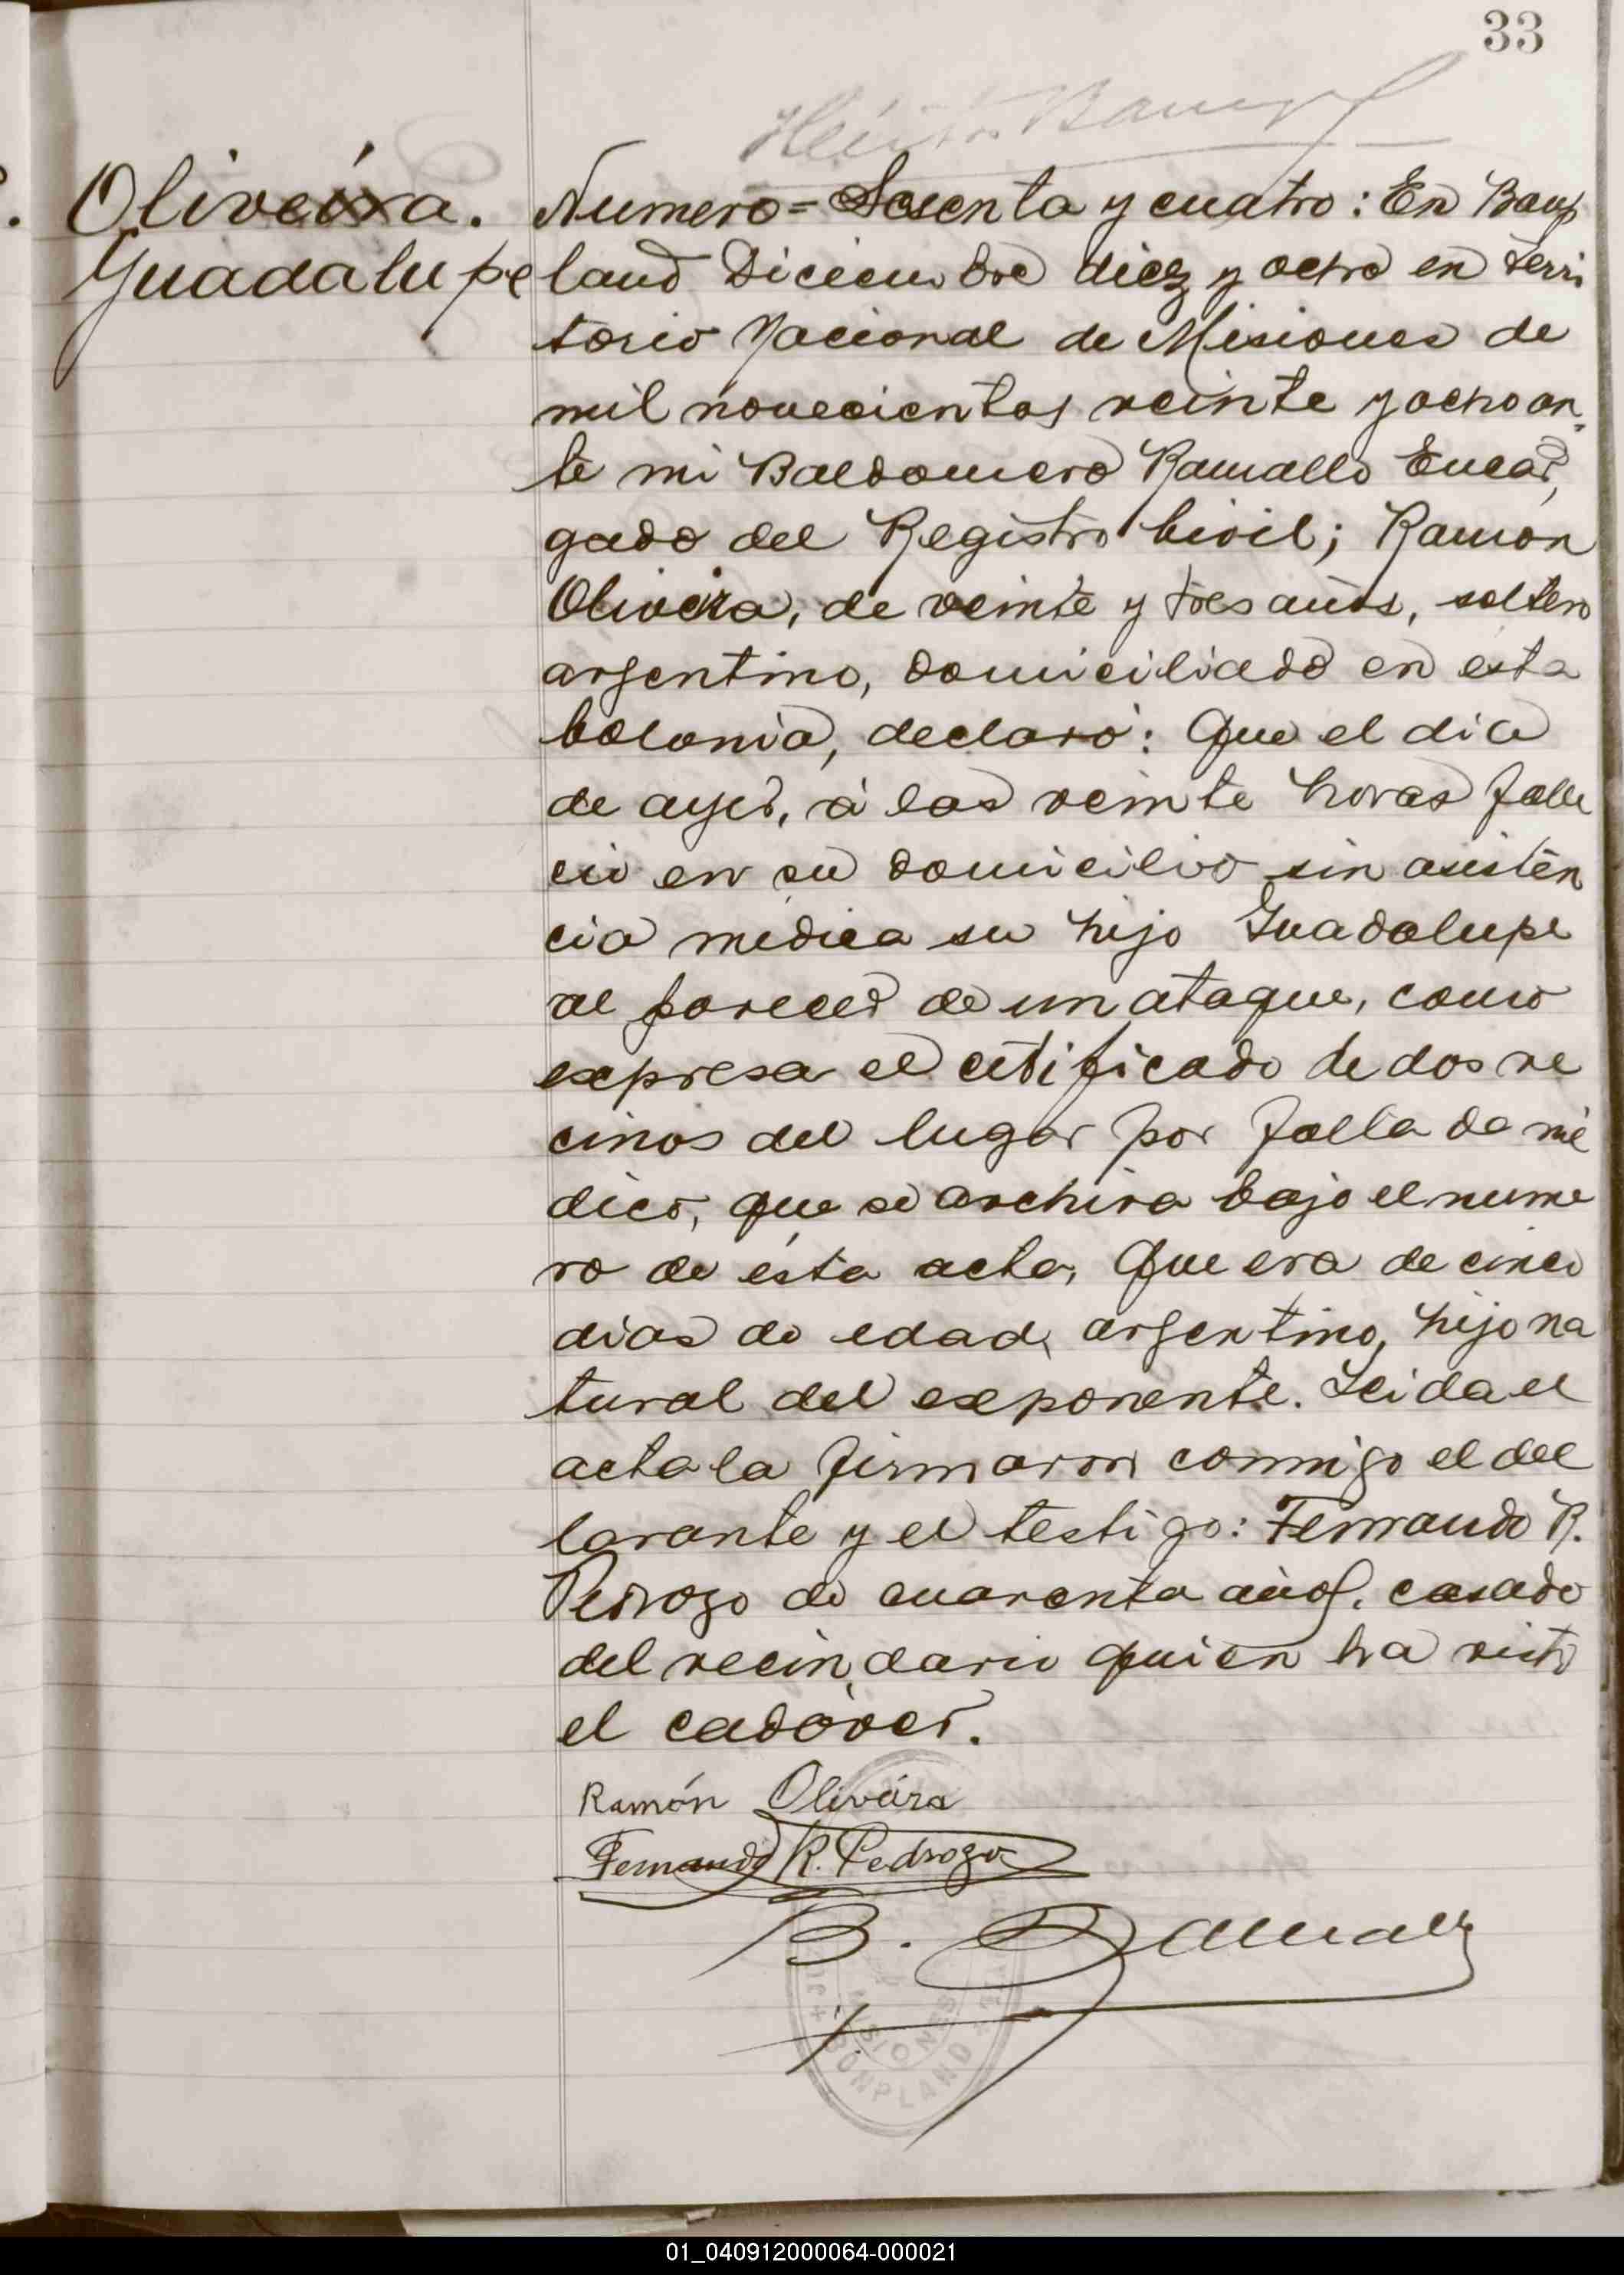 33
Oliveira.
Guadalupe
Numero = Sesenta y cuatro: En Bonp
land Diciembre diez y ocho en Terri
torio Nacional de Misiones de
mil novecientos veinte y ocho an-
te mi Baldomero Ramallo Encar,
gado del Registro Civil; Ramón
Oliveira, de veinte y tres años, soltero
argentino, domiciliado en esta
Colonia, declaró: Que el dia
de ayer, á las veinte horas falle
cio en su domicilio sin asisten
cia médica su hijo Guadalupe
al parecer de un ataque, como
expresa el cetificado de dos ve
cinos del lugar por falta de mé
dico, que se archiva bajo el nume
ro de ésta acta, Que era de cinco
dias de edad, argentino, hijo na
tural del exponente. Leida el
acta la firmaron conmigo el dec
larante y el testigo: Fernando R.
Pedrozo de cuarenta años, casado
del vecindario quien ha visto
el cadáver.
Ramón Oliveira
Fernando R. Pedrozo
B. Ramallo
MISIONES
BONPLAND
01_040912000064-000021